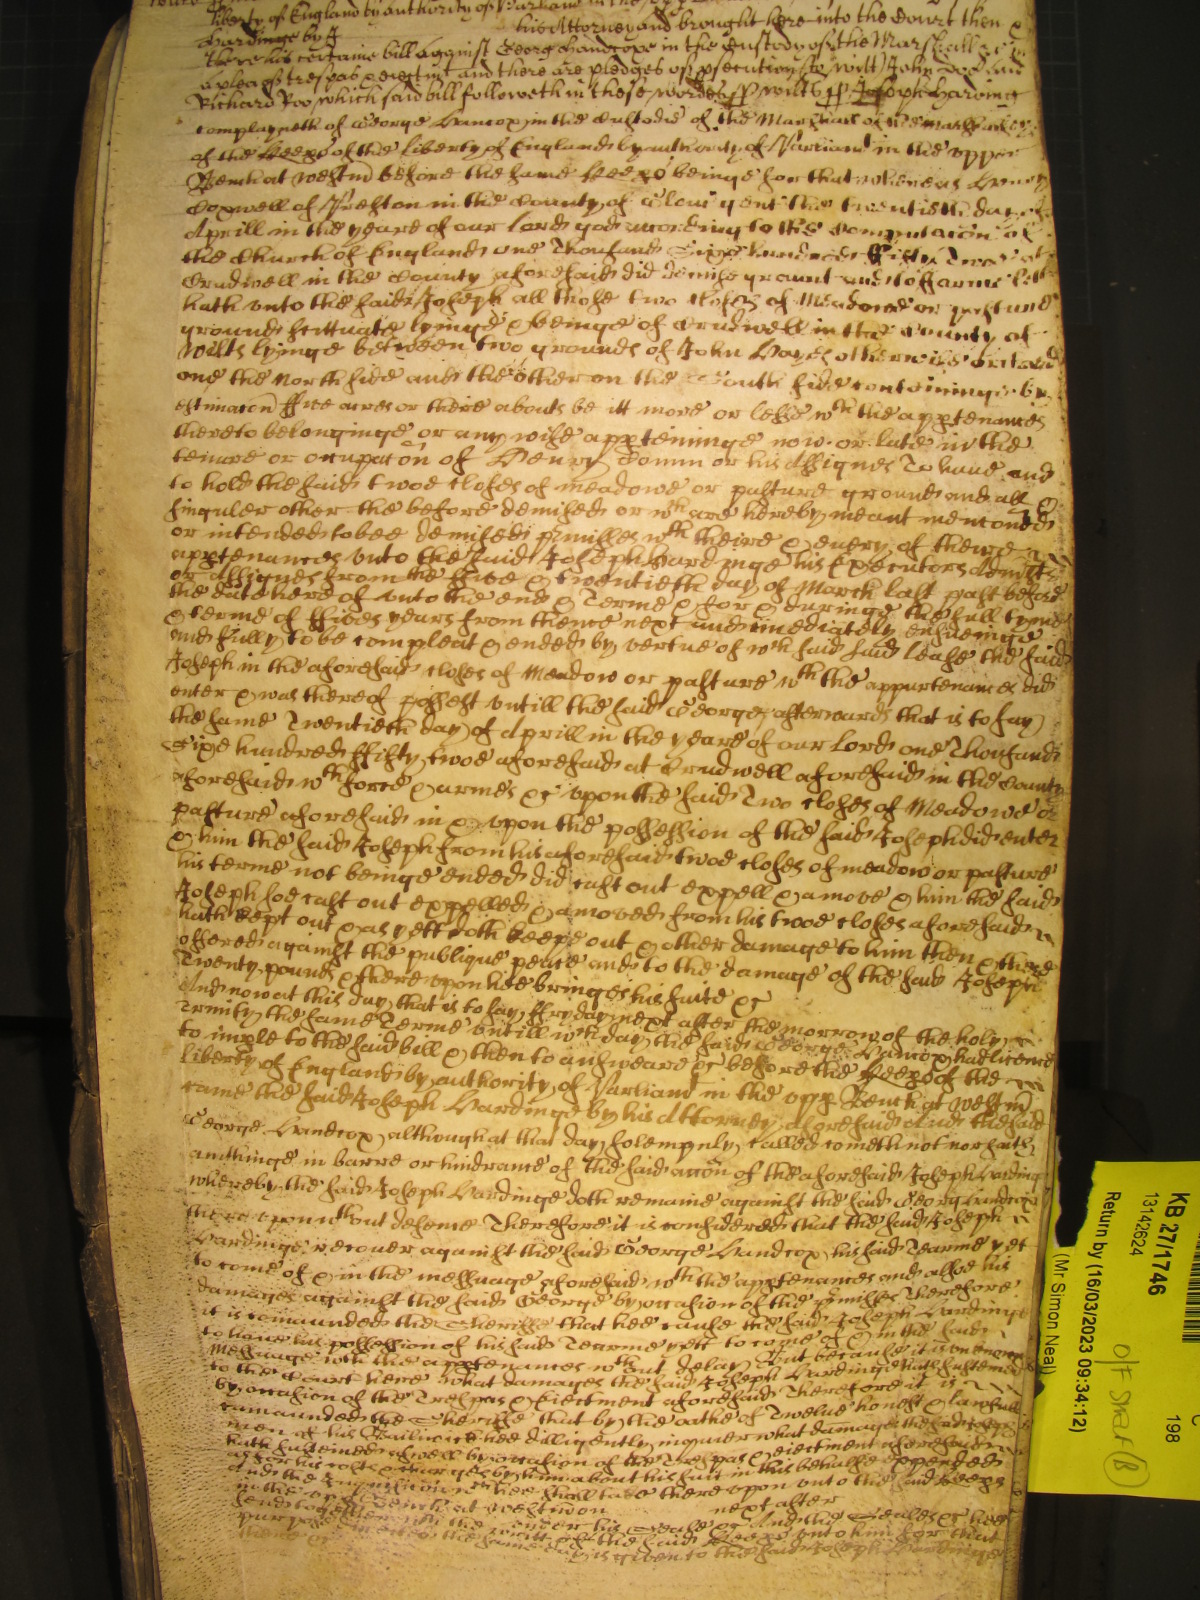 liberty of England by authority of Parliamt in the
Hardinge by J his Attorney and brought here into the Court then &
there his certaine bill against George Handcope in the Custody of the Marshall &c
a plea of trespas & eiectmt and there are pledges of psecution (to witt) John Doe and
Richard Roo which said bill followeth in these wordes ss wilts ss Joseph Hardinge
complayneth of George Hancox in the Custodie of the Marshall of the Marshalsey
of the Keeps of the liberty of England by authority of Parliamt in the upper
Bench at Westmr before the same Keeps beinge for that whereas Henry
Coxwell of Preston in the County of Glouc gent the twentieth day of
Aprill in the yeare of our Lord god according to the Computacon of
the Church of England one Thousand Sixe hundred fifty Two att
Crudwell in the County aforesaid did demise graunt and to farme lett
hath unto the saide Joseph all those two closes of Meadowe or pasture
ground scittuate lyinge & beinge of Crudwell in the County of
Wilts lyinge betweene two grounds of John Hayes otherwise
one the North side and the other on the South side conteininge by
estimacon ffive acres or there abouts be itt more or lesse wth the apptenances
thereto belonginge or any wise appteininge now or late in the
tenure or occupacon of Henry or his Assignes To have and
to hold the said twoe closes of meadowe or pasture ground and all &
singuler other the before demised or wch are hereby meant menconed
or intended to bee demised pmisses wth theire & every of theire
apptenances unto the said Joseph Hardinge his Executors Admrs
or Assignes from the ffive & twentieth day of March last past before
the date here of unto the end & Terme & for & duringe the full tyme
& terme of ffives years from thence next and imediately ensueinge
and fully to be compleat & ended by vertue of wch said said lease the said
Joseph in the aforesaid closes of Meadow or pasture wth the appurtenances did
enter & was thereof possest untill the said George afterwards that is to say
the same Twentieth day of Aprill in the yeare of our Lord one Thousand
Sixe hundred ffifty twoe aforesaid at Crudwell aforesaid in the County
aforesaid wth force & armes &c upon the said Two closes of Meadowe or
pasture aforesaid in & upon the possession of the said Joseph did enter
& him the said Joseph from his aforesaid twoe closes of meadow or pasture
his terme not beinge ended did cast out expell & amove & him the said
Joseph soe cast out expelled & amoved from his twoe closes aforesaid
hath kept out & as yett doth keepe out & other damage to him then & there
offered against the publique peace and to the damage of the said Joseph
Twenty pounds & there upon hee bringes his suite &c
And now at this day that is to say ffryday next after the morrow of the holy
Trinity the same Terme untill wch day the said George Hancox had licence
to imple to the said bill & then to answeare &c before the Keeps of the
liberty of England by authority of Parliamt in the upp Bench at Westmr
came the said Joseph Hardinge by his Attorney aforesaid And the said
George Handcox although at that day solempnly called cometh not nor saith
anythinge in barre or hindrance of the said accon of the aforesaid Joseph Hardinge
whereby the said Joseph Hardinge doth remaine against the said George Handcox
there upon wthout defence Therefore it is considered that the said Joseph
Hardinge recover against the said George Handcox his said Tearme yet
to come of & in the messuage aforesaid wth the apptenances and allsoe his
damages against the said George by occasion of the pmisses Therefore
it is comaunded the Sheriffe that hee cause the said Joseph Hardinge
to have his possession of his said Tearme yett to come of & in the said
Messuage with the apptenances wthout delay But because it is unknowne
to the Court here what damages the said Joseph Hardinge hath susteined
by occasion of the Trespas & Eiectment aforesaid Therefore it is
comaunded the Sheriffe that by the oathe of Twelve honest & lawfull
men of his Bailiwick hee dilligently inquier what damages the said Joseph
hath susteined aswell by occasion of the Trespas & eiectment aforesaid
as for his costs & charges by him about his suit in this behalfe expended
And the Inquisition wch hee shall take there upon unto the said Keeps
in the upp Bench at Westmr on next after
send together under his Seale &c And the Seales &c
purpose the writt of the said Keeps unto him for that
the same day is given to the said Joseph Hardinge
KB 27/1746
13142624
198
Return by (16/03/2023 09:34:12)
(Mr Simon Neal)